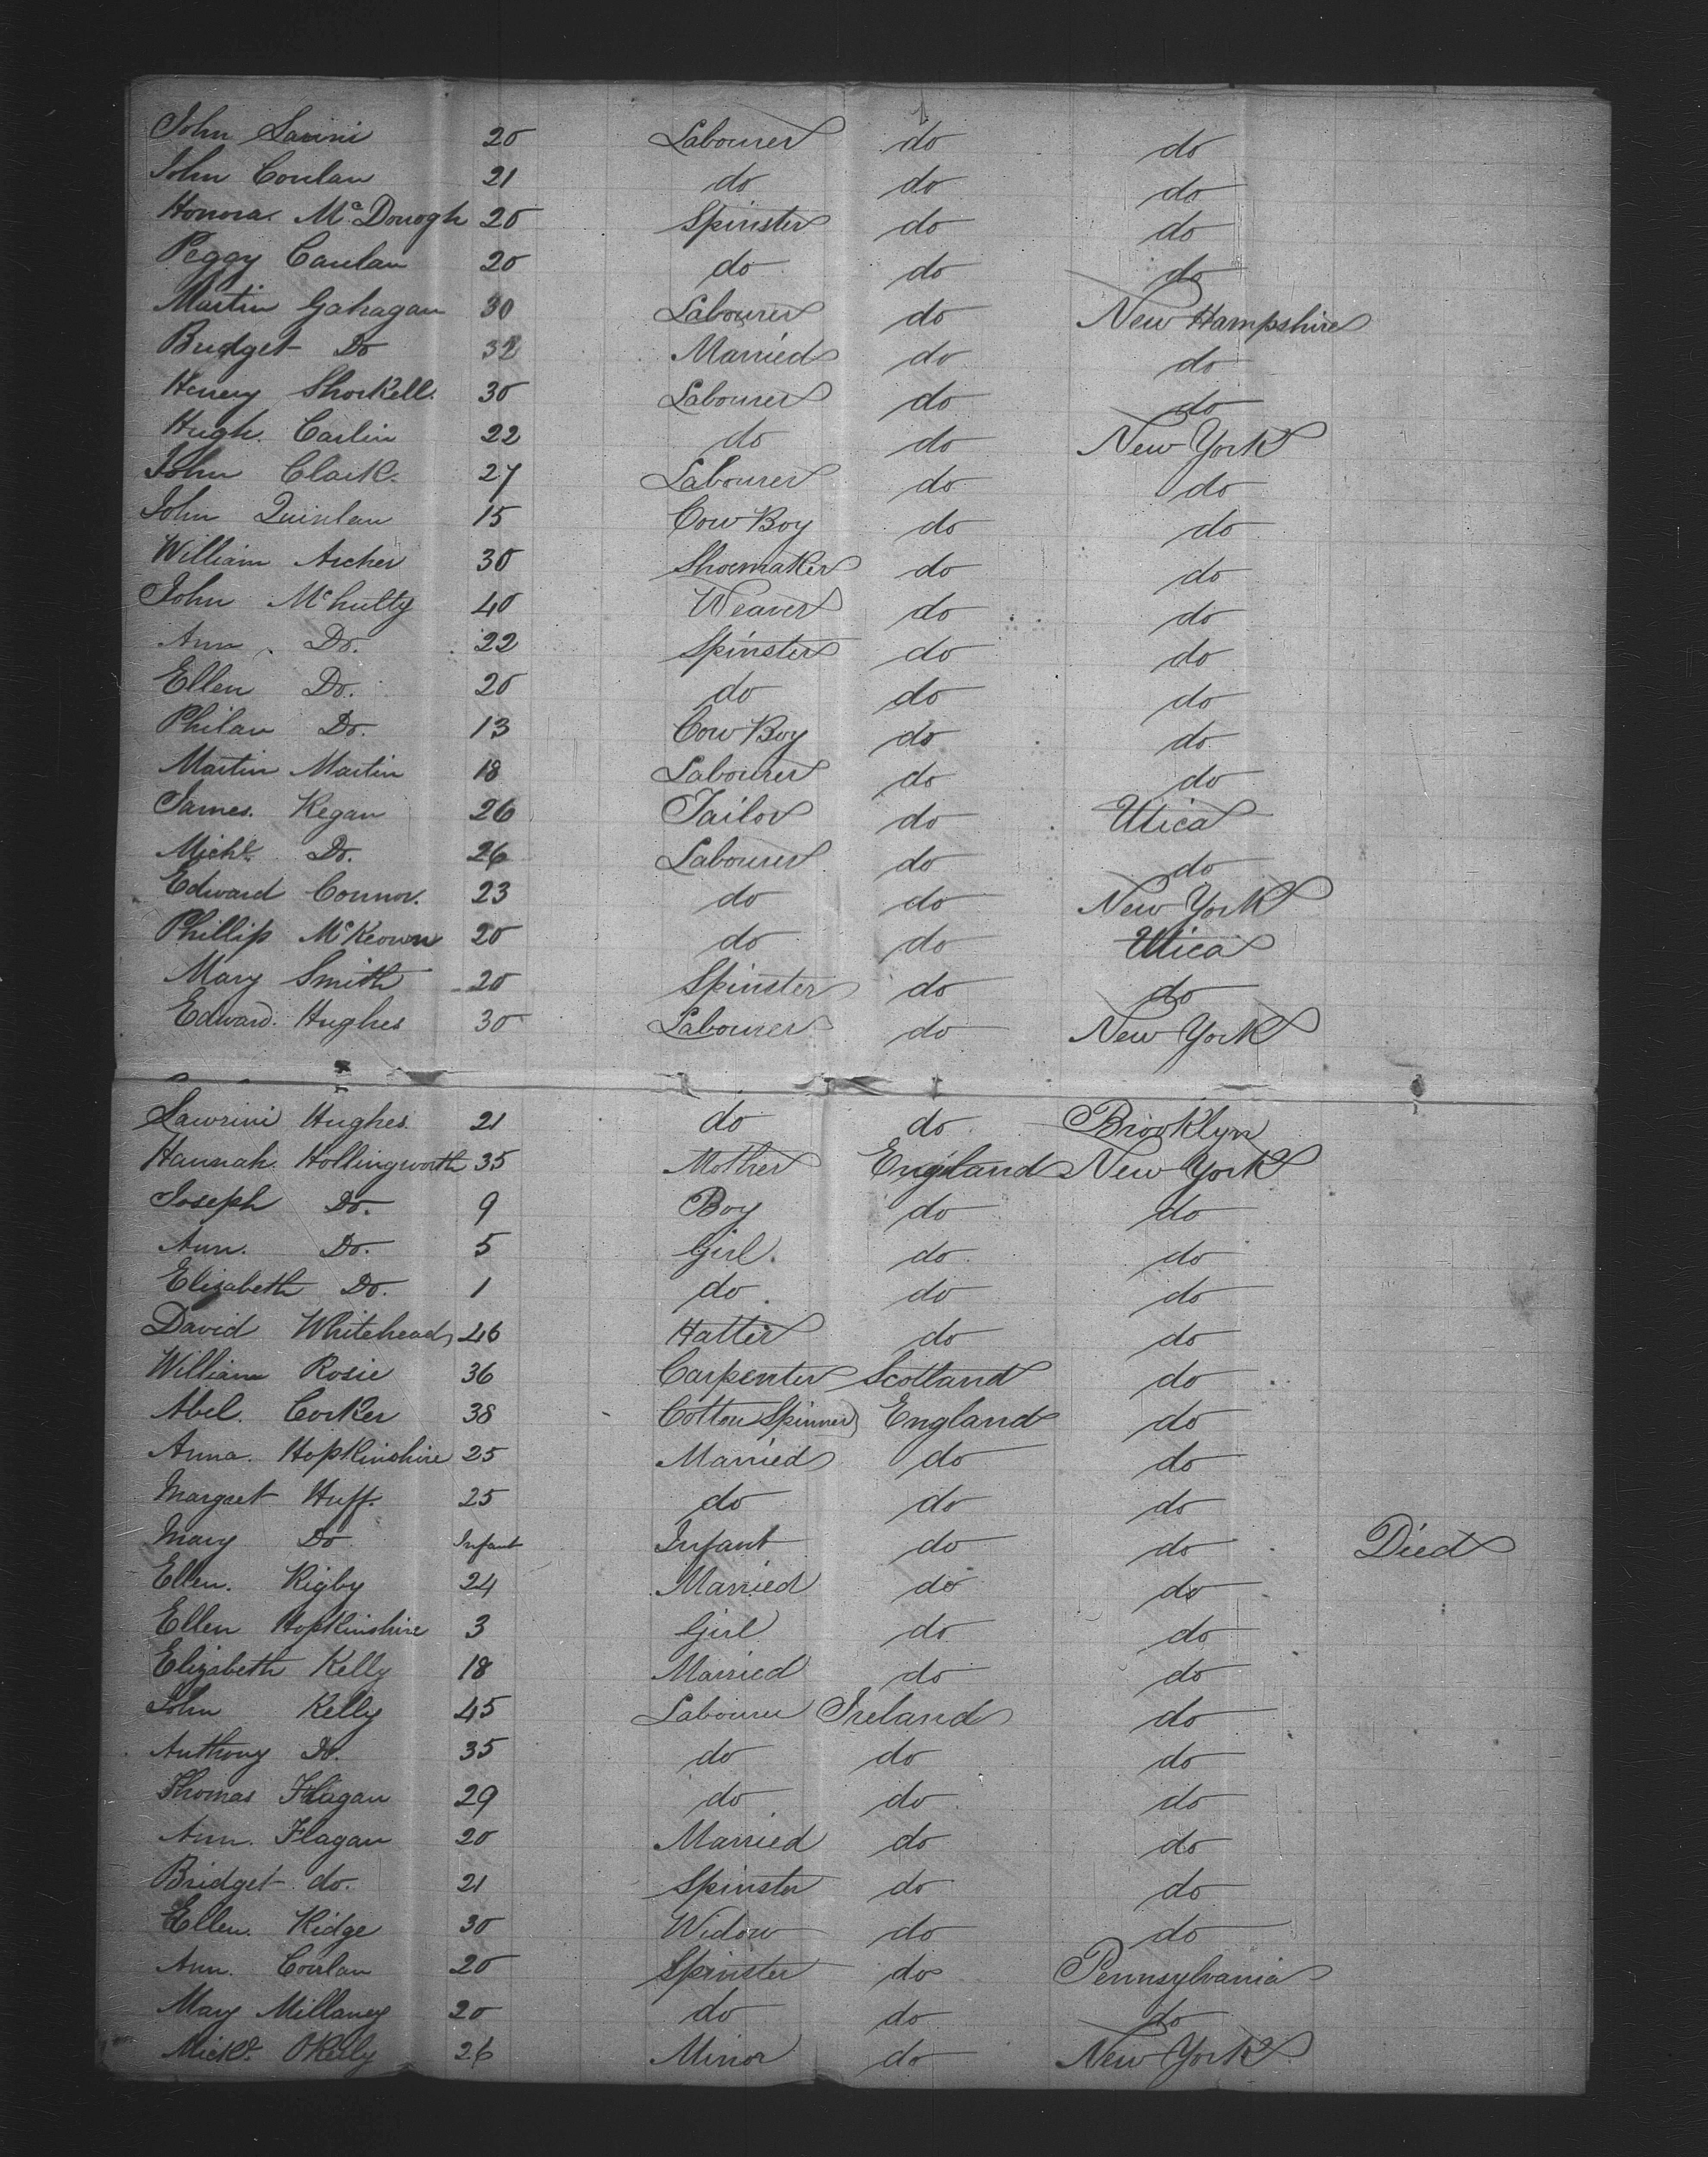 John Saurin 20 Labourer do do
John Conlan 21 do do do
Honora McDonogh 20 Spinster do do
Peggy Canlan 20 do do do
Martin Gahagan 30 Labourer do New Hampshire
Bridget Do 32 Married do do
Henery Shorkell 30 Labourer do do
Hugh Carlin 22 do do New York
John Clark 27 Labourer do do
John Quinlan 15 Cow Boy do do
William Archer 30 Shoemaker do do
John McHulty 40 Weaver do do
Ann Do. 22 Spinster do do
Ellen Do. 20 do do do
Philan Do. 13 Cow Boy do do
Martin Martin 18 Labourer do do
James Kegan 26 Tailor do Utica
Michl. Do. 26 Labourer do do
Edward Connor. 23 do do New York
Phillip McKeown 20 do do Utica
Mary Smith 20 Spinster do do
Edward Hughes 30 Labourer do New York
Lawrini Hughes 21 do do Brooklyn
Hannah Hollingworth 35 Mother England New York
Joseph Do. 9 Boy do do
Ann. Do. 5 Girl. do do
Elizabeth Do. 1 do do do
David Whitehead 46 Hatter do do
William Rosie 36 Carpenter Scotland do
Abel Corker 38 Cotton Spinner England do
Anna Hopkinshire 25 Married do do
Margaet Huff. 25 do do do
Mary Do Infant Infant do do Died
Ellen. Rigby 24 Married do do
Ellen Hopkinshire 3 Girl do do
Elizabeth Kelly 18 Married do do
John Kelly 45 Labourer Ireland do
Anthony Do. 35 do do do
Thomas Flagan 29 do do do
Ann. Flagan 20 Married do do
Bridget do. 21 Spinster do do
Ellen. Kidge 30 Widow do do
Ann. Conlan 20 Spinster do Pennsylvania
Mary Millaney 20 do do do
Mickl. OKelly 26 Minor do New York